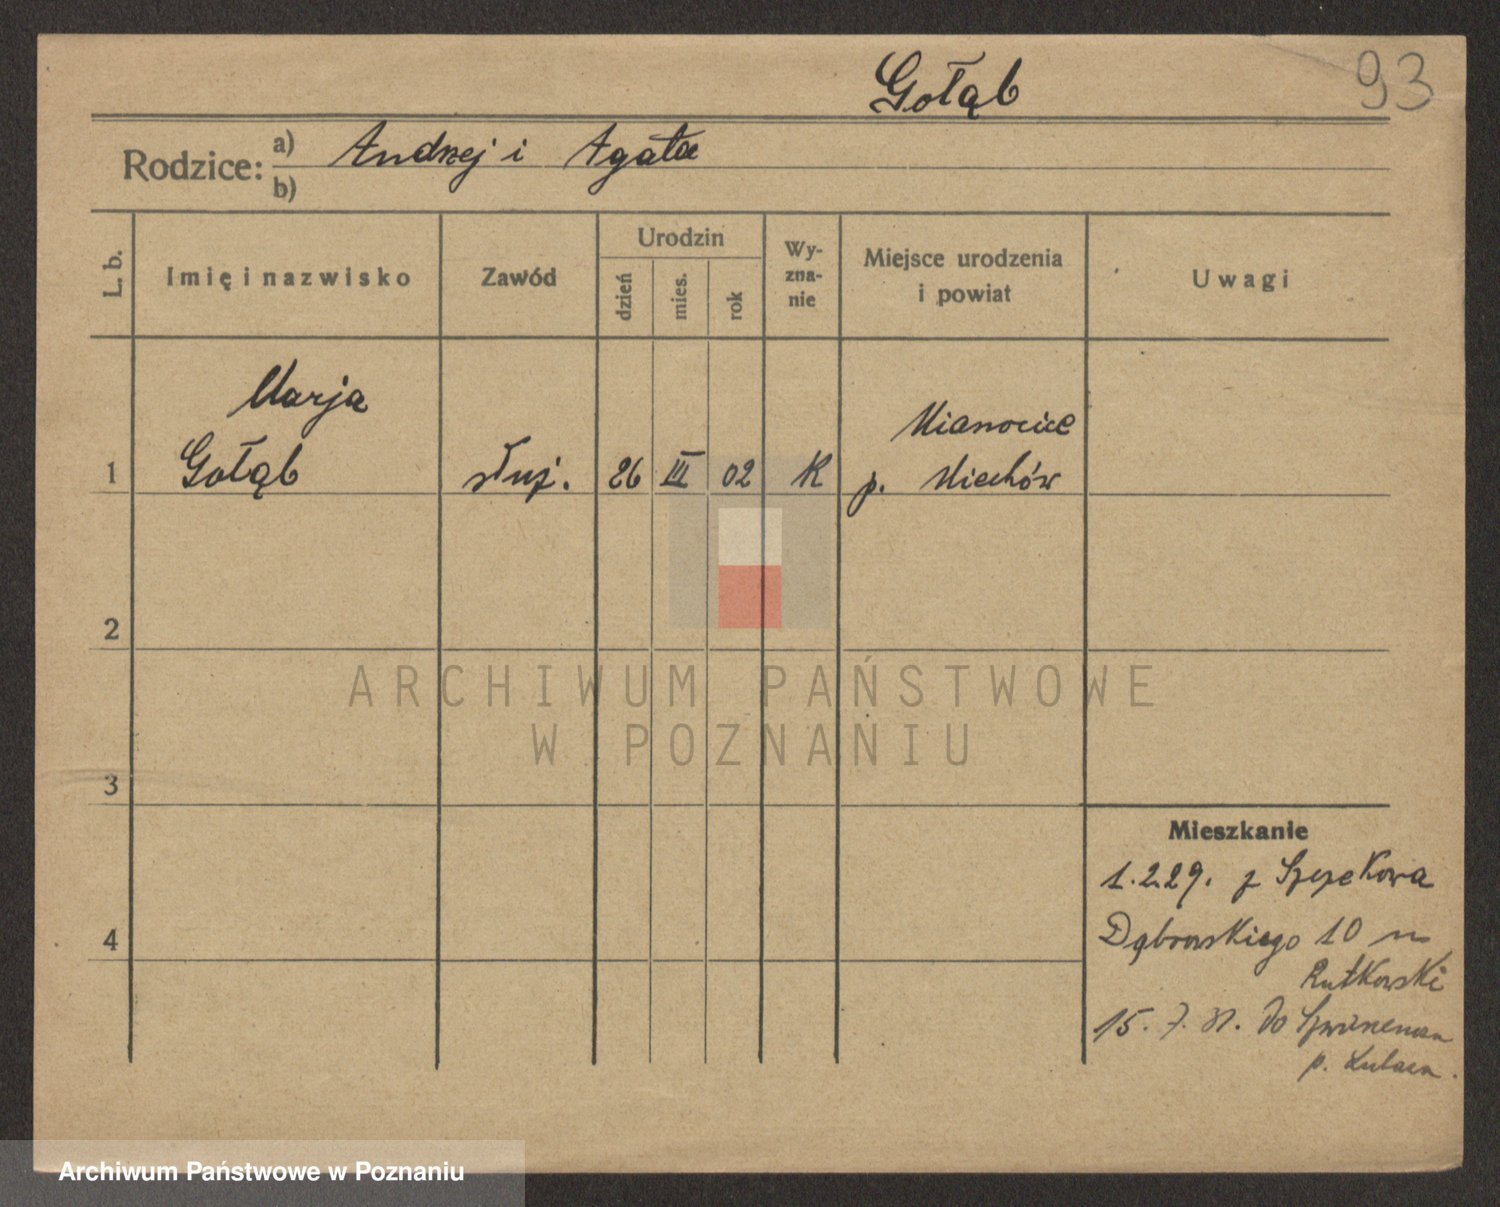 Gołąb
93
Rodzice:
a) Andrzej i Agata
b)
L. b.
Imię i nazwisko
Zawód
Urodzin
dzień
mies.
rok
Wy-
zna-
nie
Miejsce urodzenia
i powiat
Uwagi
Marja
Gołąb
1
służ.
26
III
02
K
Mianocice
p. Miechów
2
3
4
Mieszkanie
1.2.29. z
Dąbrowskiego 10 m
Rutkowski
15. 7. 31. do
p.
ARCHIWUM PAŃSTWOWE
W POZNANIU
Archiwum Państwowe w Poznaniu